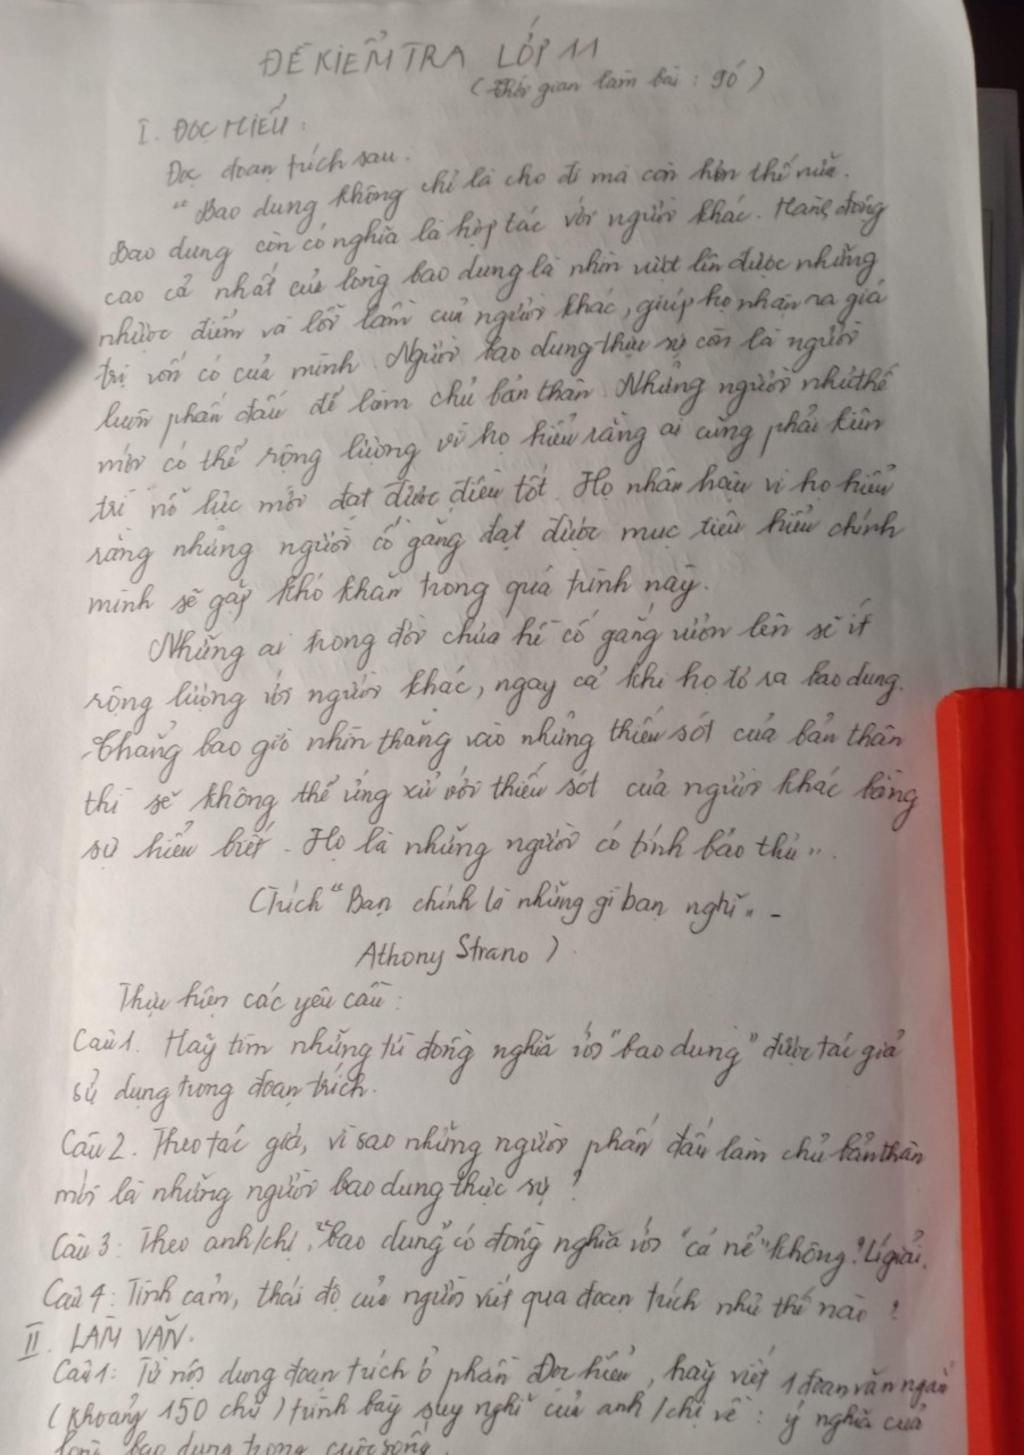 ĐỀ KIỂM TRA LỚP 11
(Thời gian làm bài: 90')
I. ĐỌC HIỂU:
Đọc đoạn trích sau:
"Bao dung không chỉ là cho đi mà còn hơn thế nữa.
Bao dung còn có nghĩa là hợp tác với người khác. Hành động
cao cả nhất của lòng bao dung là nhìn vượt lên được những
nhược điểm và lỗi lầm của người khác, giúp họ nhận ra giá
trị vốn có của mình. Người bao dung thực sự còn là người
luôn phấn đấu để làm chủ bản thân. Những người như thế
mới có thể rộng lượng vì họ hiểu rằng ai cũng phải kiên
trì nỗ lực mới đạt được điều tốt. Họ nhân hậu vì họ hiểu
rằng những người cố gắng đạt được mục tiêu hiểu chính
mình sẽ gặp khó khăn trong quá trình này.
Những ai trong đời chưa hề cố gắng vươn lên sẽ ít
rộng lượng với người khác, ngay cả khi họ tỏ ra bao dung.
Chẳng bao giờ nhìn thẳng vào những thiếu sót của bản thân
thì sẽ không thể ứng xử với thiếu sót của người khác bằng
sự hiểu biết. Họ là những người có tính bảo thủ".
(Trích "Bạn chính là những gì bạn nghĩ" -
Athony Strano)
Thực hiện các yêu cầu:
Câu 1. Hãy tìm những từ đồng nghĩa với "bao dung" được tác giả
sử dụng trong đoạn trích.
Câu 2. Theo tác giả, vì sao những người phấn đấu làm chủ bản thân
mới là những người bao dung thực sự?
Câu 3: Theo anh/chị, "bao dung" có đồng nghĩa với "cả nể" không? Lí giải.
Câu 4: Tình cảm, thái độ của người viết qua đoạn trích như thế nào?
II. LÀM VĂN.
Câu 1: Từ nội dung đoạn trích ở phần Đọc hiểu, hãy viết 1 đoạn văn ngắn
(khoảng 150 chữ) trình bày suy nghĩ của anh/chị về: ý nghĩa của
lòng bao dung trong cuộc sống.